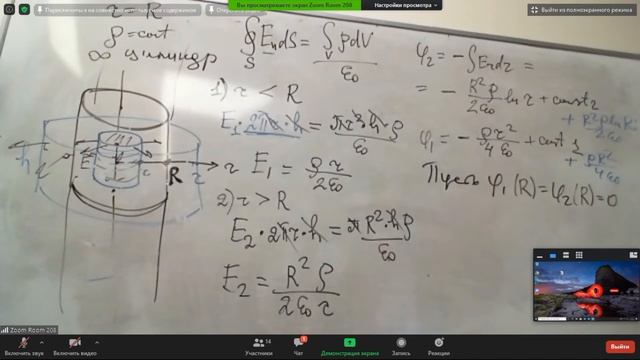 Переключиться на совместное использование содержимое
Вы просматриваете экран Zoom Room 208
Настройки просмотра
Выйти из полноэкранного режима
ρ = const
∞ цилиндр
∮_S E_n dS = ∫_V ρdV / ε₀
1) r < R
E₁ · 2πr · h = πr² h · ρ / ε₀
E₁ = ρ r / 2ε₀
2) r > R
E₂ · 2πr · h = πR² · h ρ / ε₀
E₂ = R² ρ / 2ε₀ r
φ₂ = − ∫ E₂ dr =
= − R² ρ / 2ε₀ ln r + const₂ + R² ρ ln R / 2ε₀
φ₁ = − ρ r² / 4 ε₀ + const 1 + ρR² / 4ε₀
Пусть φ₁(R) = φ₂(R) = 0
h
R
r
Zoom Room 208
Включить звук
Включить видео
14
Участники
Чат
Демонстрация экрана
Запись
Реакции
Выйти